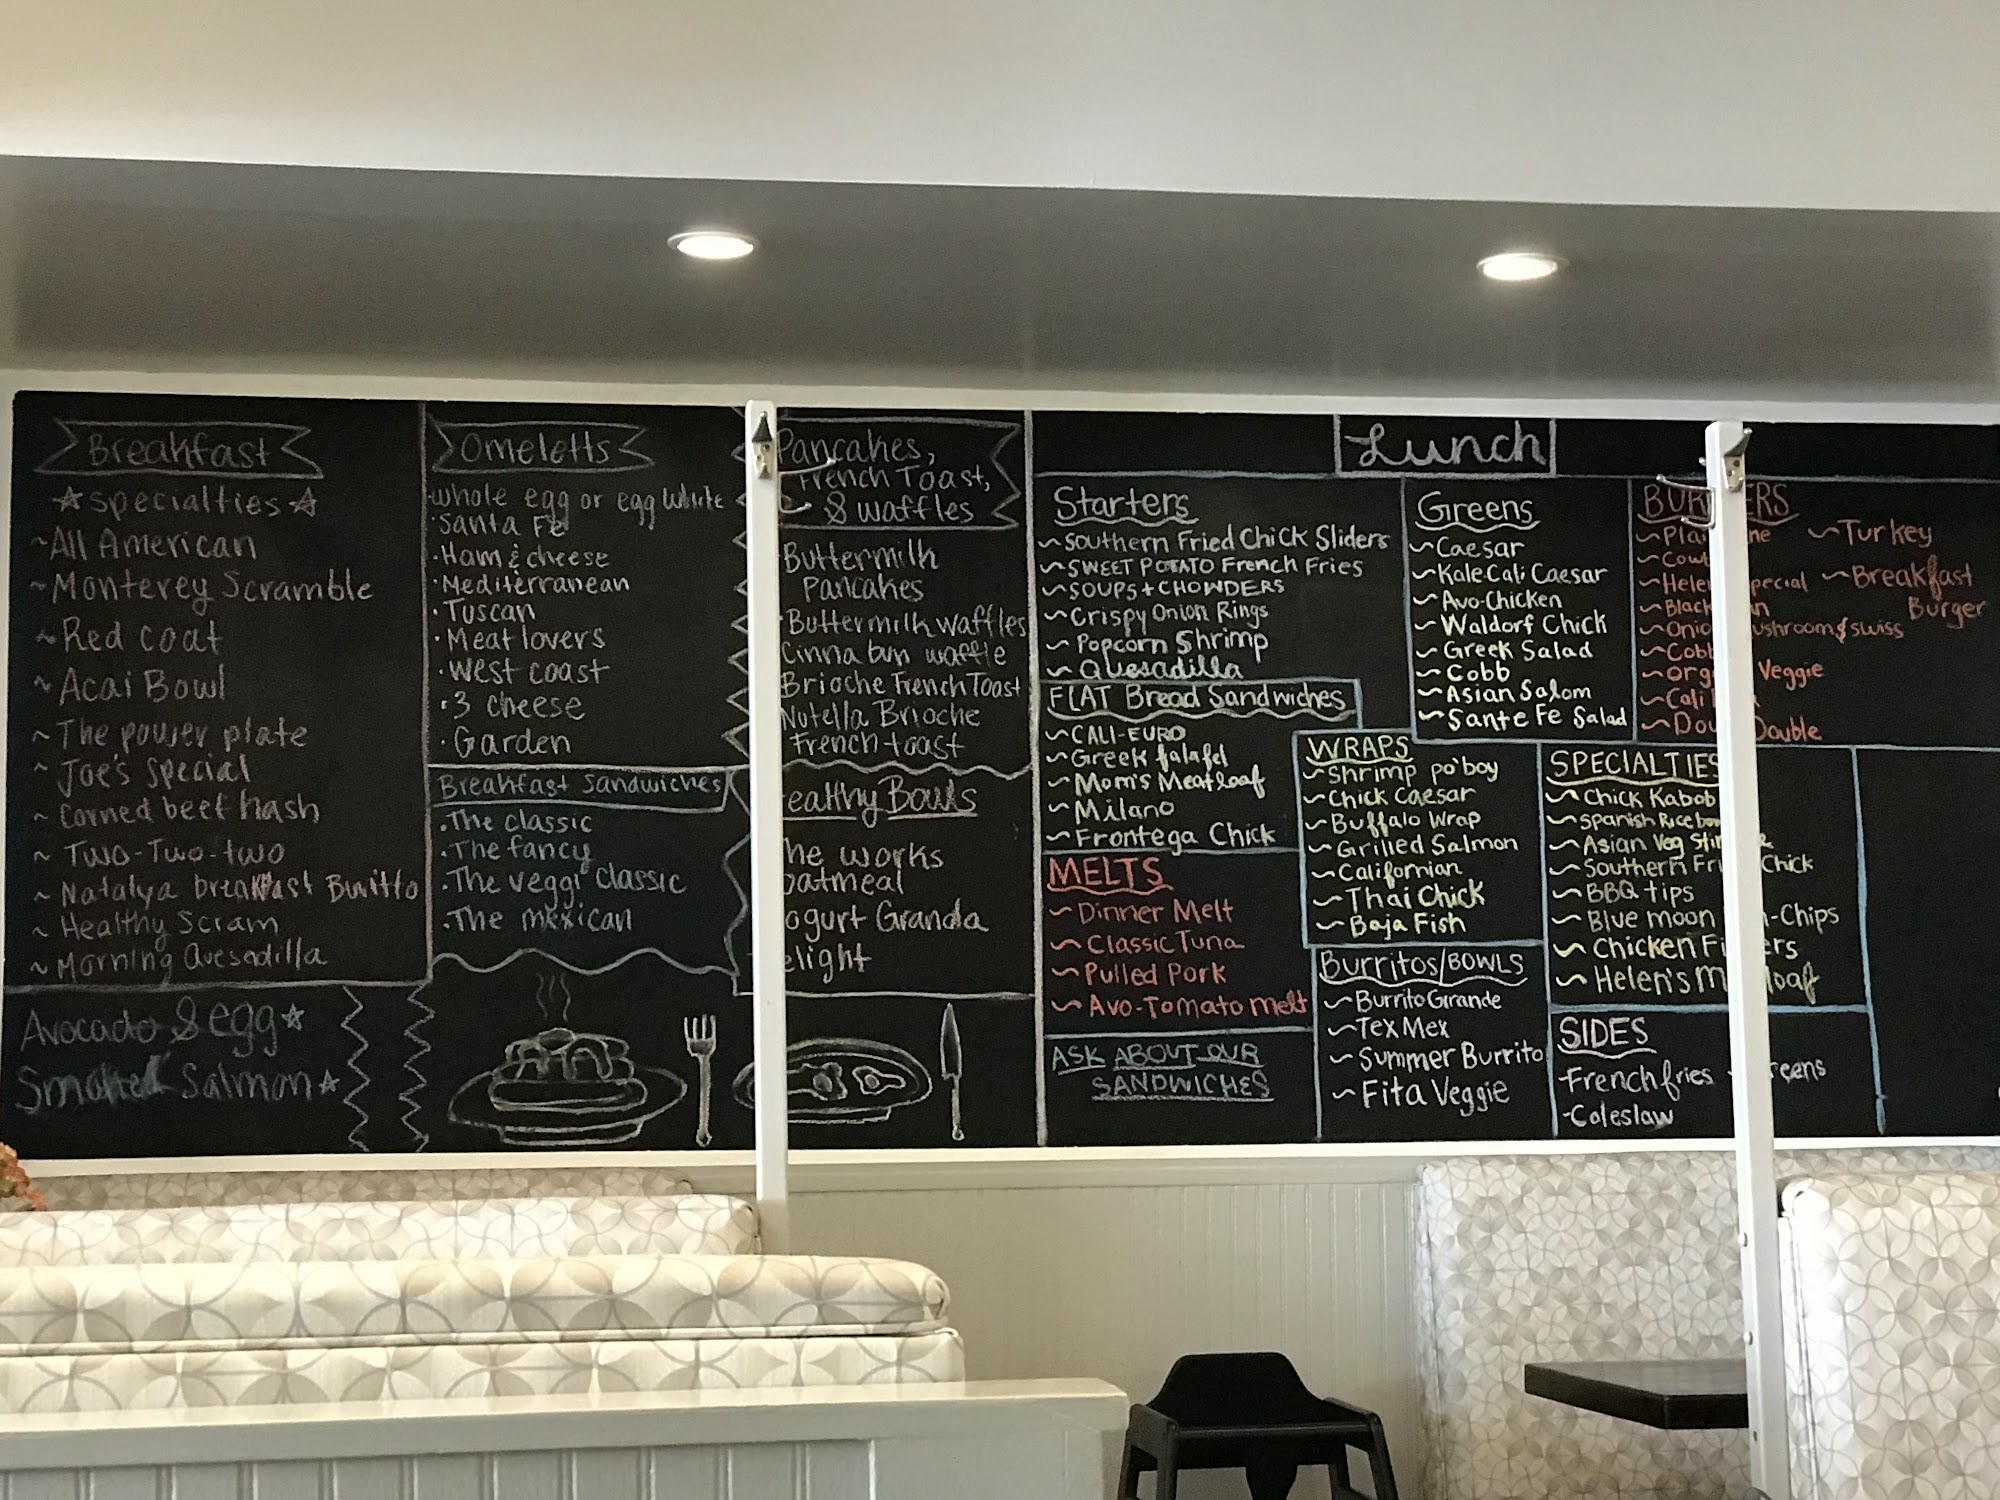 Breakfast
☆specialties☆
~All American
~Monterey Scramble
~Red coat
~Acai Bowl
~The power plate
~Joe's special
~Corned beef hash
~Two-Two-two
~Natalya breakfast Buritto
~Healthy Scram
~Morning Quesadilla
Avocado & egg☆
Smoked Salmon☆
Omeletts
·whole egg or egg white
·Santa Fe
·Ham & cheese
·Mediterranean
·Tuscan
·Meat lovers
·west coast
·3 cheese
·Garden
Breakfast Sandwiches
·The classic
·The fancy
·The veggi classic
·The mexican
Pancakes,
French Toast,
& waffles
Buttermilk
Pancakes
Buttermilk waffles
Cinnabun waffle
Brioche French Toast
Nutella Brioche
French toast
Bowls
works
oatmeal
Granola
Lunch
Starters
~Southern Fried Chick Sliders
~SWEET POTATO French Fries
~SOUPS + CHOWDERS
~Crispy Onion Rings
~Popcorn Shrimp
~Quesadilla
FLAT Bread Sandwiches
~CALI-EURO
~Greek falafel
~Mom's Meatloaf
~Milano
~Frontega Chick
MELTS
~Dinner Melt
~Classic Tuna
~Pulled Pork
~Avo-Tomato melt
ASK ABOUT OUR
SANDWICHES
Greens
~Caesar
~Kale Cali Caesar
~Avo-Chicken
~Waldorf Chick
~Greek Salad
~Cobb
~Asian Salom
~Sante Fe Salad
WRAPS
~Shrimp po'boy
~Chick Caesar
~Buffalo Wrap
~Grilled Salmon
~Californian
~Thai Chick
~Baja Fish
Burritos/BOWLS
~Burrito Grande
~Tex Mex
~Summer Burrito
~Fita Veggie
BURGERS
~Helen Special
~Onion Mushroom & swiss
~Cobb
~Veggie
~Cali
~Double Double
~Turkey
~Breakfast
Burger
SPECIALTIES
~Chick Kabob
~Spanish Rice
~Asian Veg
~Southern Fried Chick
~BBQ tips
~Blue moon -Chips
~Chicken Fingers
~Helen's Meatloaf
SIDES
-French fries
-Greens
-Coleslaw